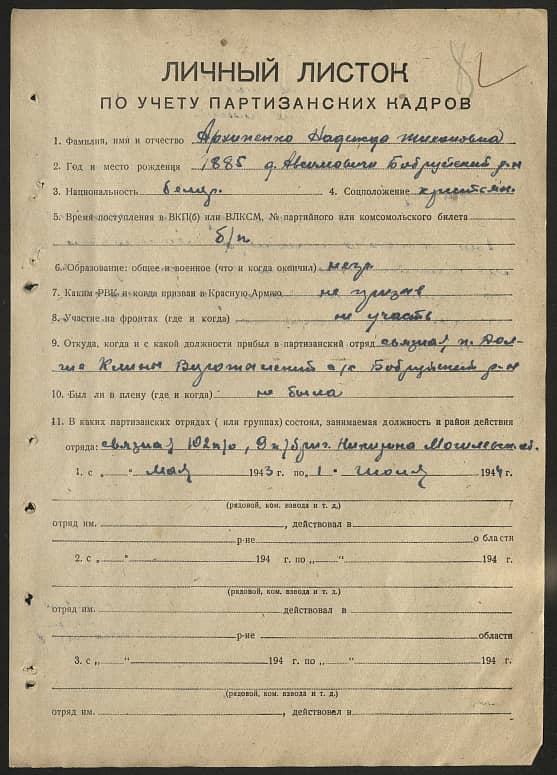 ЛИЧНЫЙ ЛИСТОК
ПО УЧЕТУ ПАРТИЗАНСКИХ КАДРОВ
1. Фамилия, имя и отчество Архипенко Надежда Тихоновна
2. Год и место рождения 1885 д. Авсимовичи Бобруйский р-н
3. Национальность белор. 4. Соцположение крестьян.
5. Время поступления в ВКП(б) или ВЛКСМ, № партийного или комсомольского билета
б/п
6. Образование: общее и военное (что и когда окончил) негр.
7. Каким РВК и когда призван в Красную Армию не призыв
8. Участие на фронтах (где и когда) не участв
9. Откуда, когда и с какой должности прибыл в партизанский отряд связная п. Дол-
гие Клины с/с Бобруйский р-н
10. Был ли в плену (где и когда) не была
11. В каких партизанских отрядах ( или группах) состоял, занимаемая должность и район действия
отряда: связная 102 п/о, 9 п/бриг. Могилевск. об.
1. с „ “ мая 1943 г. по „1 “ июля 1944 г.
(рядовой, ком. взвода и т. д.)
отряд им. , действовал в
р-не о бласти
2. с „ “ 194 г. по „ “ 194 г.
(рядовой, ком. взвода и т. д.)
отряд им. действовал в
р-не области
3. с „ “ 194 г. по „ “ 194 г.
(рядовой, ком. взвода и т. д.)
отряд им. , действовал в